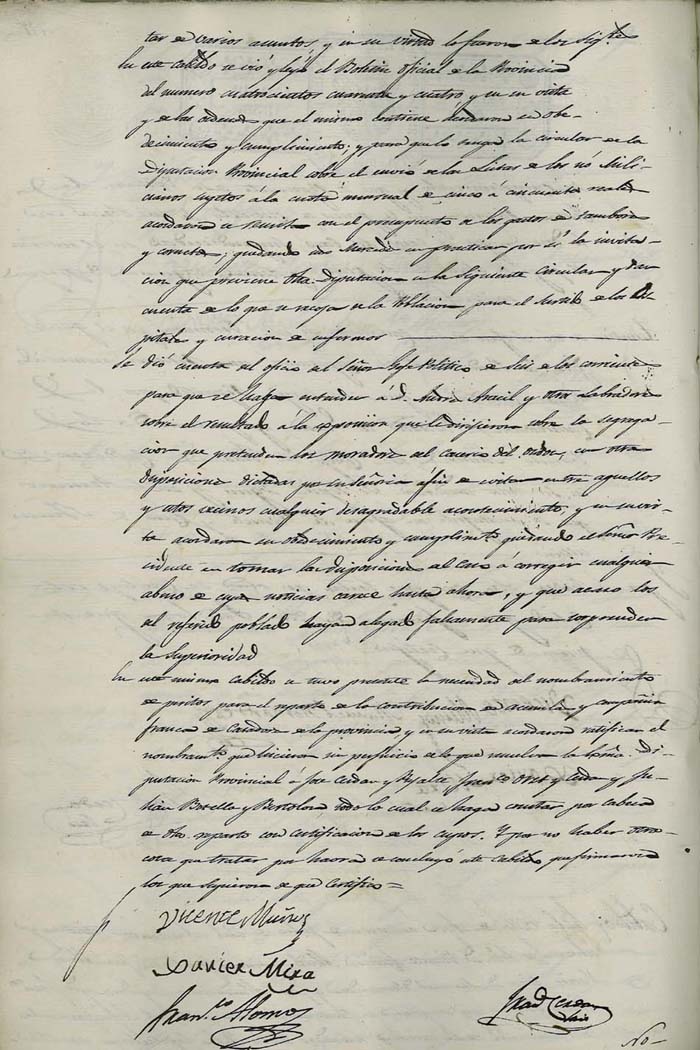 tar de varios asuntos, y en su virtud lo fueron de los Sigtes
En este cabildo se vió y leyó el Boletin oficial de la Provincia
del numero cuatrocientos cuarenta y cuatro y en su vista
y de las ordenes que el mismo contiene acordaron su obe-
decimiento y cumplimiento; y para que lo tenga la circular de la
Diputacion Provincial sobre el envió de las Listas de los nó Mili-
cianos sujetos á la cuota mensual de cinco á cincuenta reales
acordaron se remita con el presupuesto de los gastos de tambores
y cornetas; quedando sus Mercedes en practicar por sí la invita-
cion que previene dha. Diputacion en la Siguiente Circular y dar
cuenta de lo que se recoja en la Poblacion para el surtido de los Os-
pitales y curacion de enfermos
Se dió cuenta del oficio del Señor Gefe Politico de seis de los corrientes
para que se haga entender á D. Aracil y otros Labradores
sobre el resultado á la exposicion que le dirijieron sobre la segrega-
cion que pretenden los moradores del Caserio del, con otras
disposiciones dictadas por su Señoria á fin de evitar entre aquellos
y estos vecinos cualquier desagradable acontecimiento, y en su vis-
ta acordaron su obedecimiento y cumplimto. quedando el Señor Pre-
cidente en tomar las disposiciones del caso á corregir cualquier
abuso de cuyas noticias carece hasta ahora, y que acaso los
del referido poblado hayan alegado falsamente para sorprender
la Superioridad
En este mismo Cabildo se tuvo presente la necesidad del nombramiento
de peritos para el reparto de la contribucion de y compañia
franca de de la provincia, y en su vista acordaron ratificar el
nombramto. que hicieron sin perjuicio de lo que resuelva la Di-
putacion Provincial á Jose Cerdan y, Franco. y Cerdan y Ju-
lian Botella y, todo lo cual se haga constar por cabeza
de dho. reparto con certificacion de los cupos. Y por no haber otra
cosa que tratar por haora se concluyó este Cabildo que firmaron
los que supieron de que Certifico =
Vicente Muñoz
Xavier Mira
Franco. Alonso
Cerdan
No-